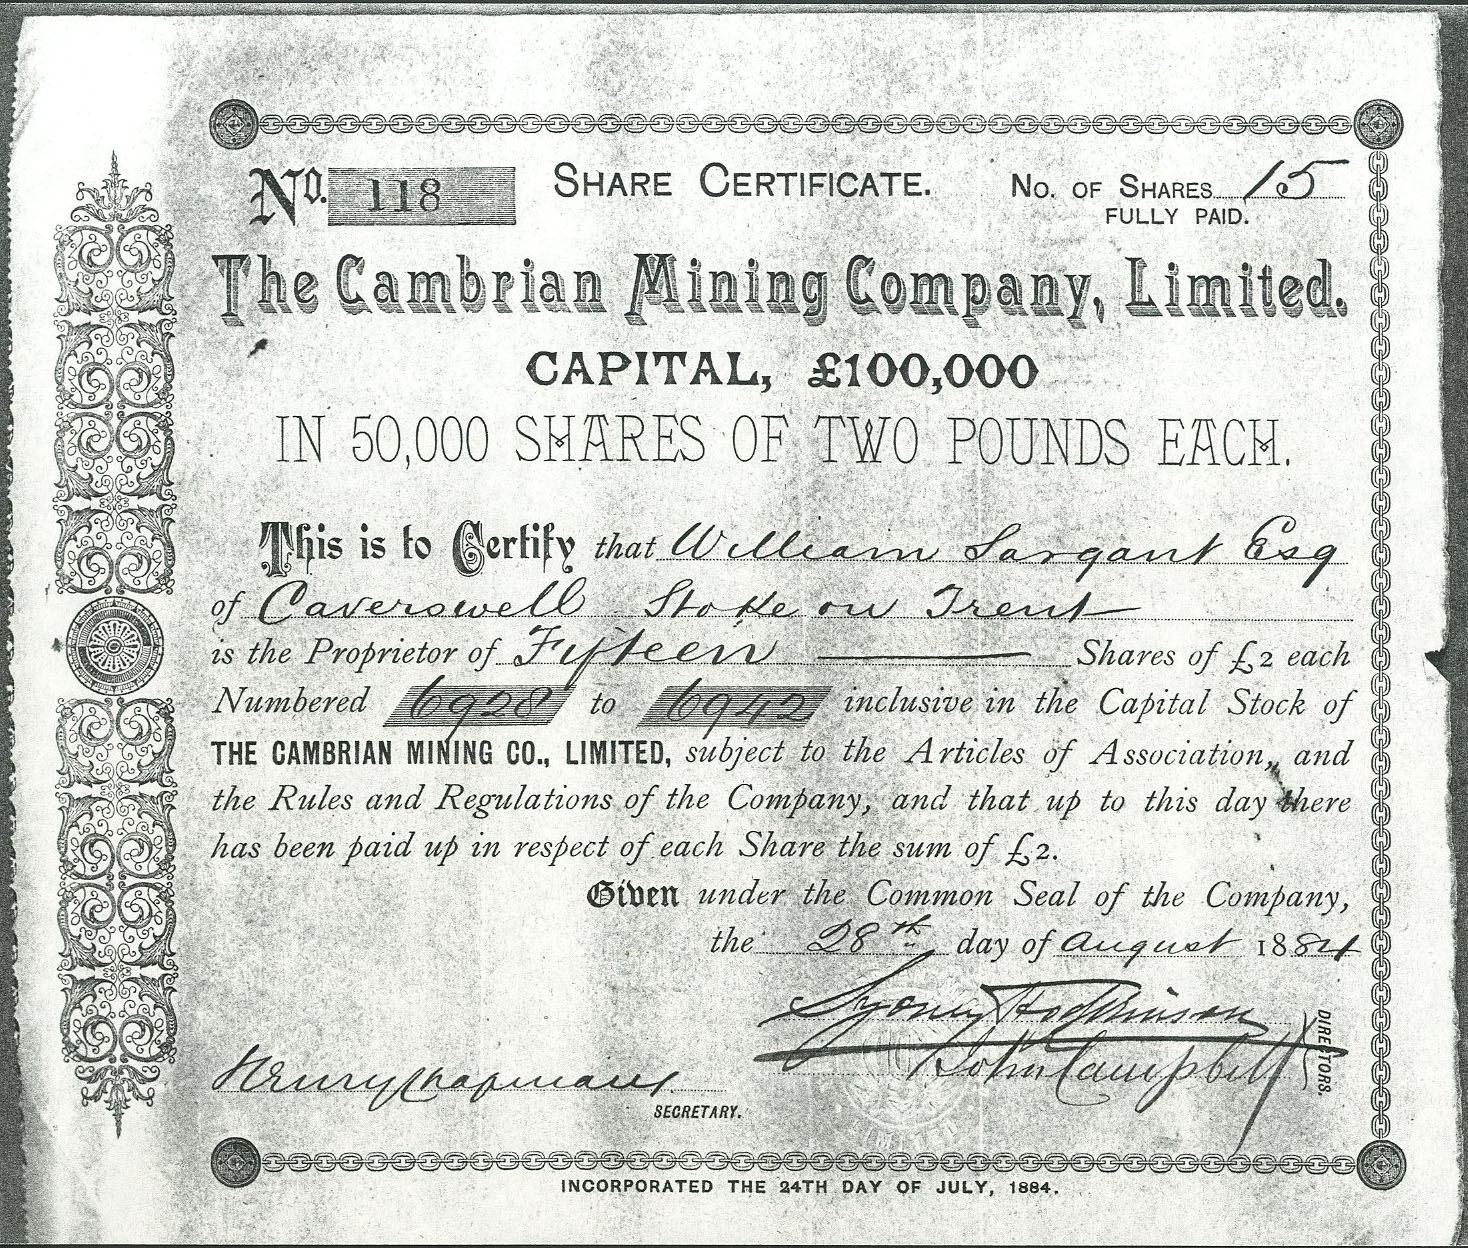 No. 118 SHARE CERTIFICATE. NO. OF SHARES 15
FULLY PAID.
The Cambrian Mining Company, Limited.
CAPITAL, £100,000
IN 50,000 SHARES OF TWO POUNDS EACH.
This is to Certify that William Sargant Esq
of Caverswell Stoke on Trent
is the Proprietor of Fifteen Shares of £2 each
Numbered 6928 to 6942 inclusive in the Capital Stock of
THE CAMBRIAN MINING CO., LIMITED, subject to the Articles of Association, and
the Rules and Regulations of the Company, and that up to this day there
has been paid up in respect of each Share the sum of £2.
Given under the Common Seal of the Company,
the 28th day of August 1884
Sydney Hodkinson
John Campbell
DIRECTORS.
Henry Chapman
SECRETARY.
LIMITED
INCORPORATED THE 24TH DAY OF JULY, 1884.